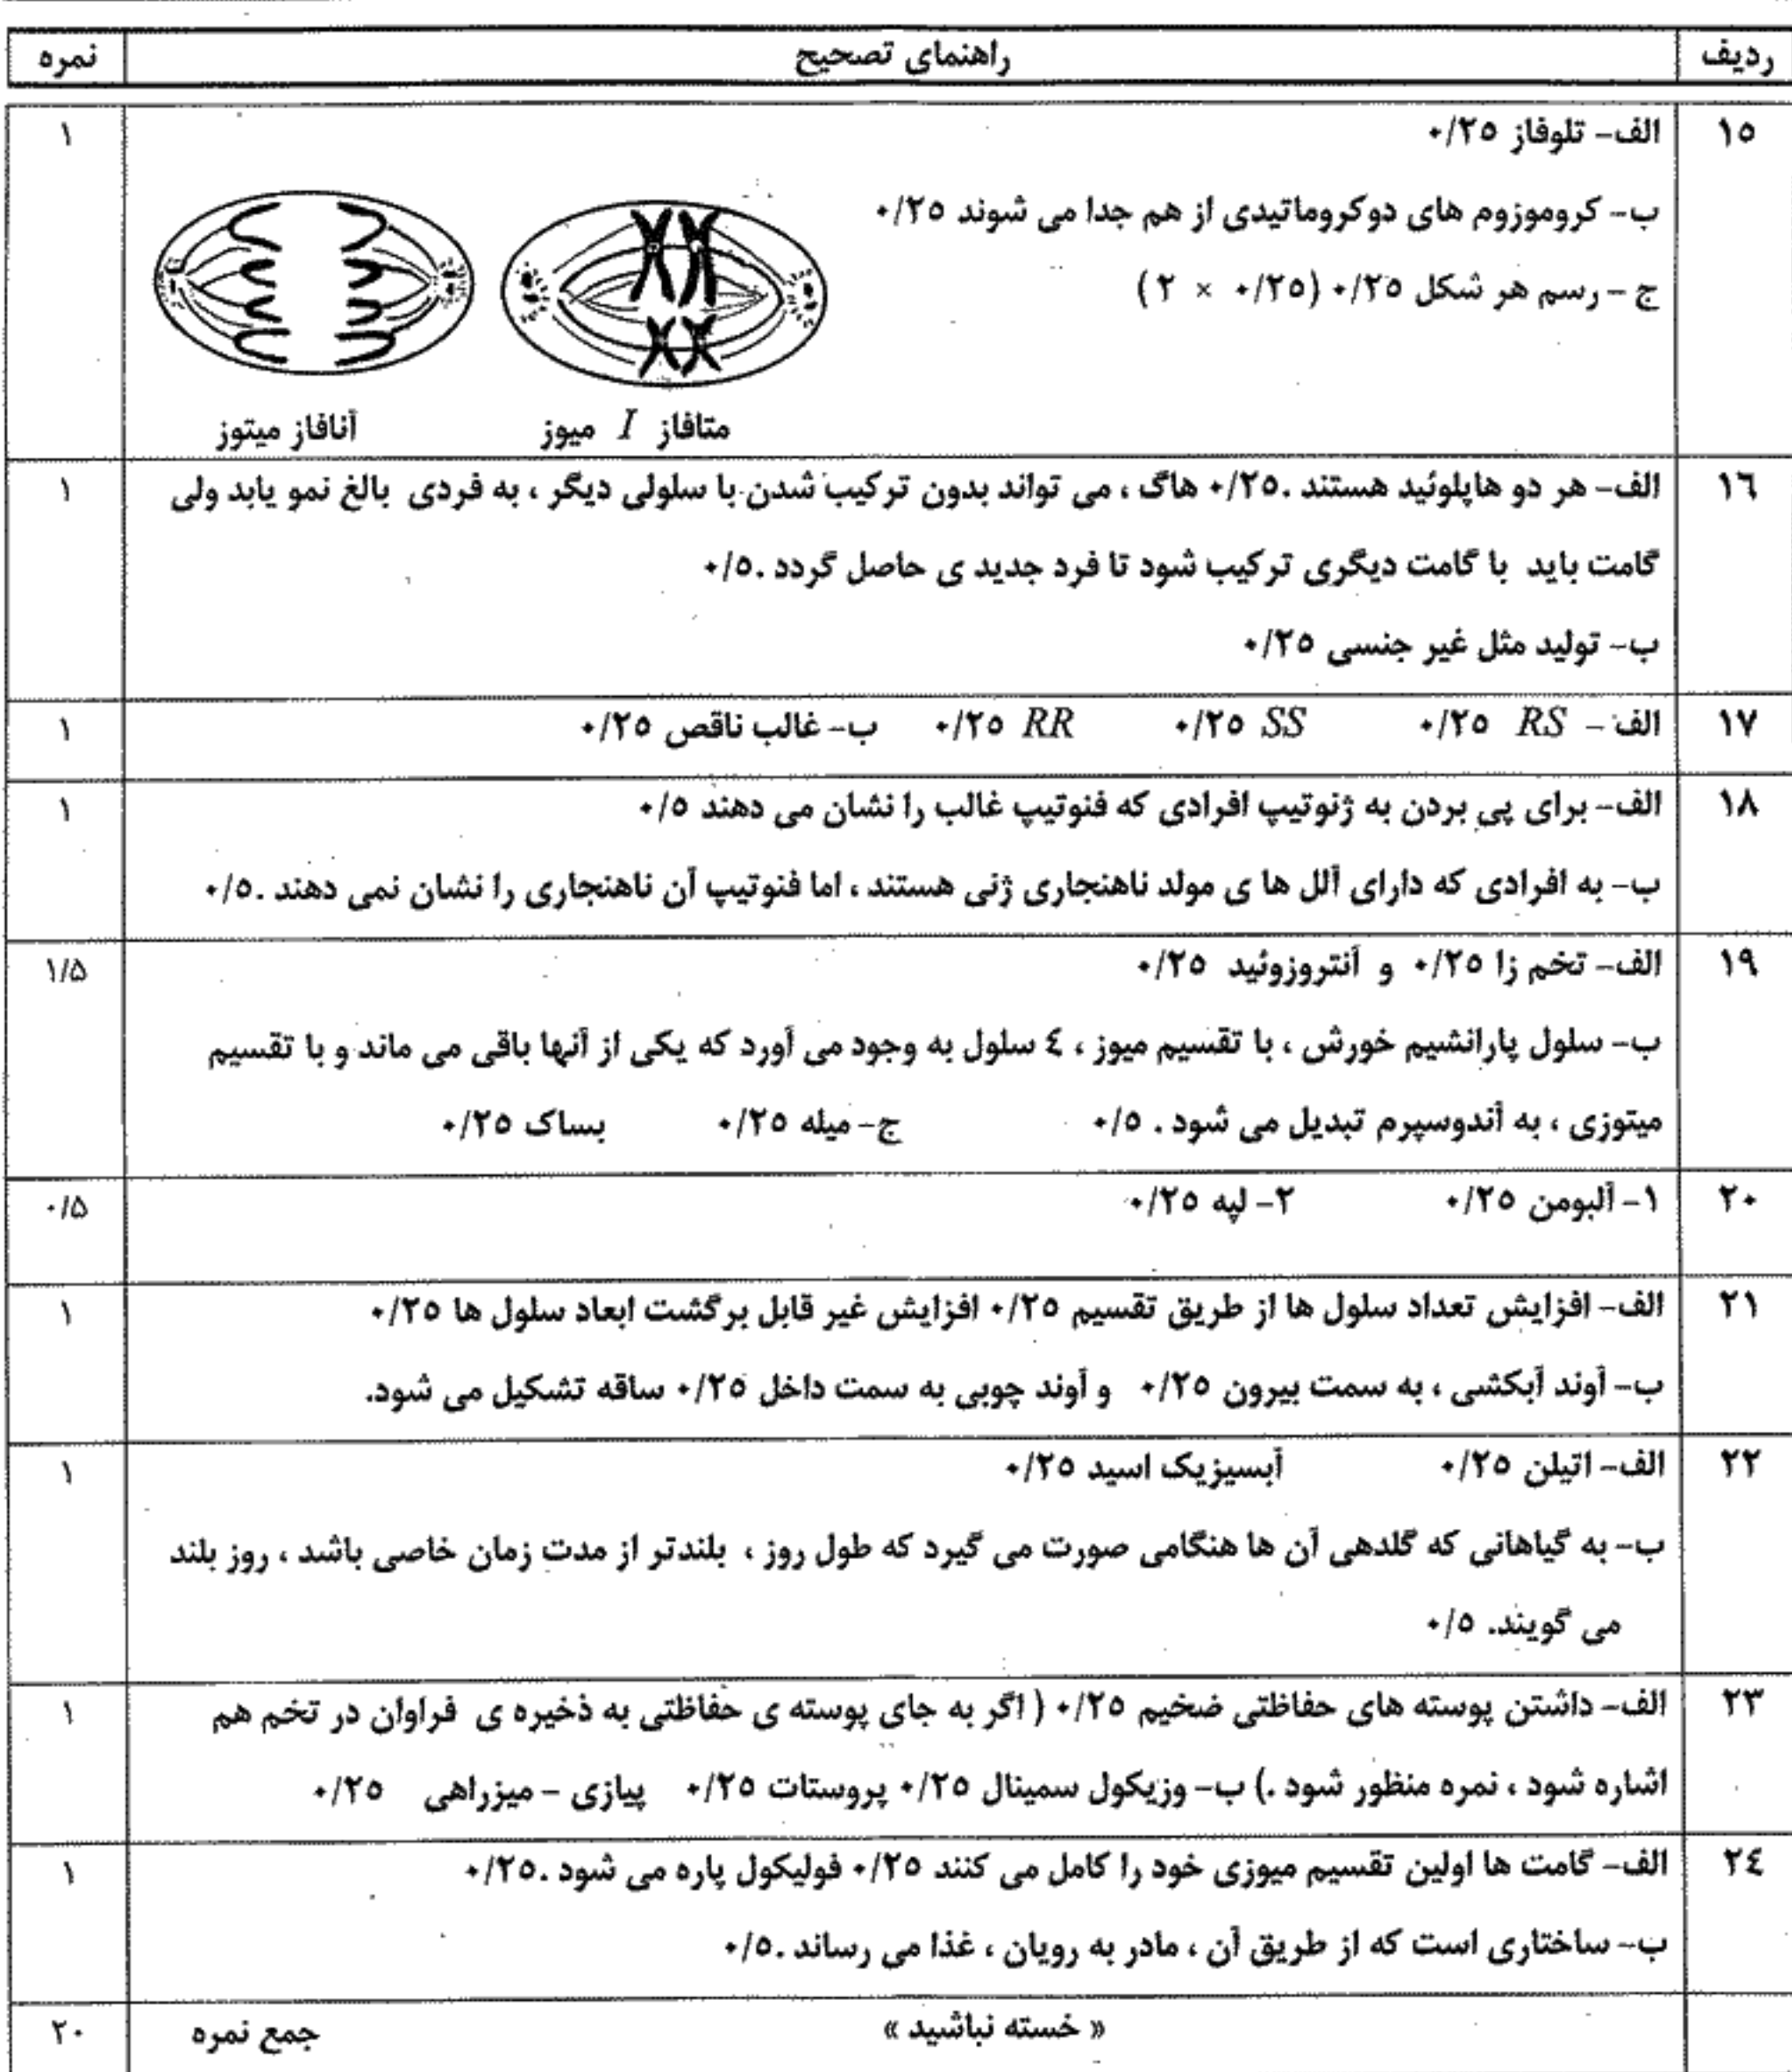 ردیف راهنمای تصحیح نمره
۱۵ الف- تلوفاز ۰/۲۵ ۱
ب- کروموزوم های دوکروماتیدی از هم جدا می شوند ۰/۲۵
ج - رسم هر شکل ۰/۲۵ (۰/۲۵ × ۲)
متافاز I میوز آنافاز میتوز
۱۶ الف- هر دو هاپلوئید هستند .۰/۲۵ هاگ ، می تواند بدون ترکیب شدن با سلولی دیگر ، به فردی بالغ نمو یابد ولی ۱
گامت باید با گامت دیگری ترکیب شود تا فرد جدید ی حاصل گردد .۰/۵
ب- تولید مثل غیر جنسی ۰/۲۵
۱۷ الف - RS ۰/۲۵ SS ۰/۲۵ RR ۰/۲۵ ب- غالب ناقص ۰/۲۵ ۱
۱۸ الف- برای پی بردن به ژنوتیپ افرادی که فنوتیپ غالب را نشان می دهند ۰/۵ ۱
ب- به افرادی که دارای آلل ها ی مولد ناهنجاری ژنی هستند ، اما فنوتیپ آن ناهنجاری را نشان نمی دهند .۰/۵
۱۹ الف- تخم زا ۰/۲۵ و آنتروزوئید ۰/۲۵ ۱/۵
ب- سلول پارانشیم خورش ، با تقسیم میوز ، ٤ سلول به وجود می آورد که یکی از آنها باقی می ماند و با تقسیم
میتوزی ، به آندوسپرم تبدیل می شود . ۰/۵ ج- میله ۰/۲۵ بساک ۰/۲۵
۲۰ ۱- آلبومن ۰/۲۵ ۲- لپه ۰/۲۵ ۰/۵
۲۱ الف- افزایش تعداد سلول ها از طریق تقسیم ۰/۲۵ افزایش غیر قابل برگشت ابعاد سلول ها ۰/۲۵ ۱
ب- آوند آبکشی ، به سمت بیرون ۰/۲۵ و آوند چوبی به سمت داخل ۰/۲۵ ساقه تشکیل می شود.
۲۲ الف- اتیلن ۰/۲۵ آبسیزیک اسید ۰/۲۵ ۱
ب- به گیاهانی که گلدهی آن ها هنگامی صورت می گیرد که طول روز ، بلندتر از مدت زمان خاصی باشد ، روز بلند
می گویند. ۰/۵
۲۳ الف- داشتن پوسته های حفاظتی ضخیم ۰/۲۵ ( اگر به جای پوسته ی حفاظتی به ذخیره ی فراوان در تخم هم ۱
اشاره شود ، نمره منظور شود .) ب- وزیکول سمینال ۰/۲۵ پروستات ۰/۲۵ پیازی - میزراهی ۰/۲۵
۲٤ الف- گامت ها اولین تقسیم میوزی خود را کامل می کنند ۰/۲۵ فولیکول پاره می شود .۰/۲۵ ۱
ب- ساختاری است که از طریق آن ، مادر به رویان ، غذا می رساند .۰/۵
« خسته نباشید » جمع نمره ۲۰